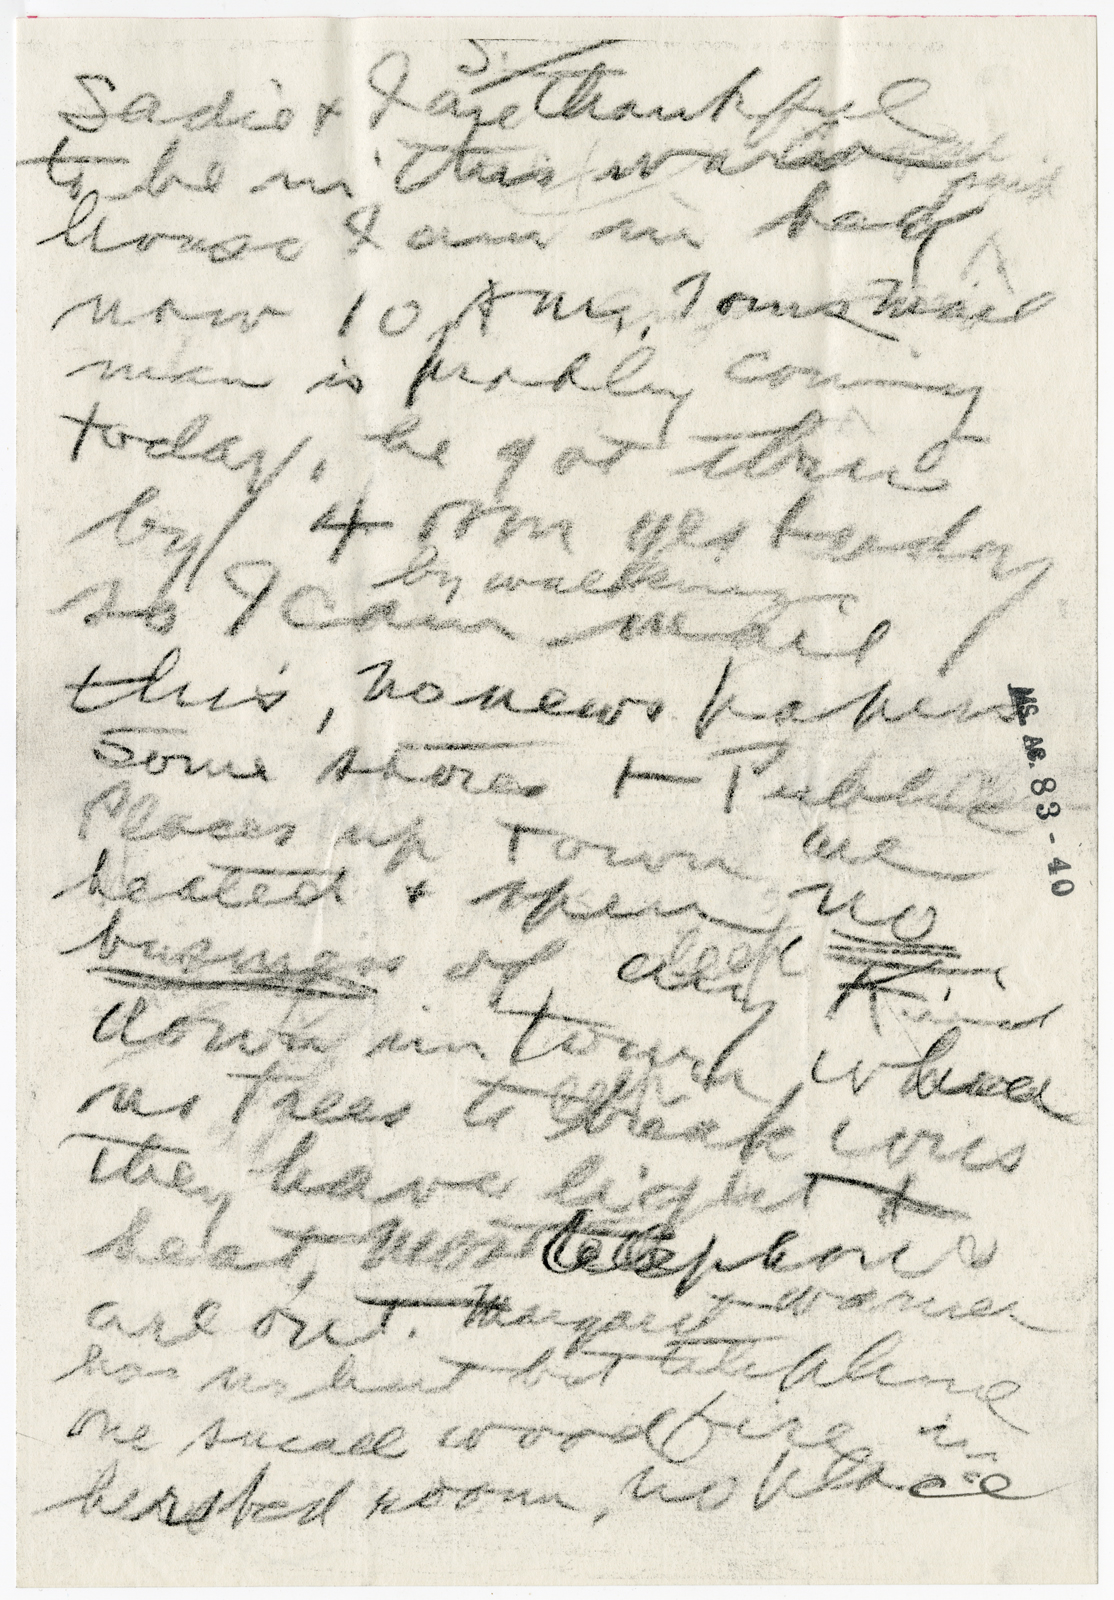 5.
Sadie & I are thankful
to be in this warm
house I am in bed
now 10 A M. Toms mail
man is probly coming
today, he got thru
by 4 P M yesterday
by walking
so I can mail
this, no news papers
Some stores & Public
Places up town are
heated & open, no
business of any Kind
down in town, where
no trees to break wires
they have light &
heat, most telephones
are out. Margaret Warner
has no heat but telephone
one small wood fire in
her bed room, no place
MS. Ac. 83-40